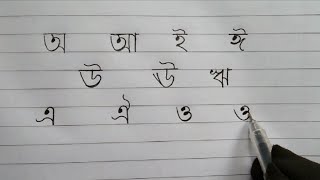 অ আ ই ঈ
উ উ ঋ
এ ঐ ও ও